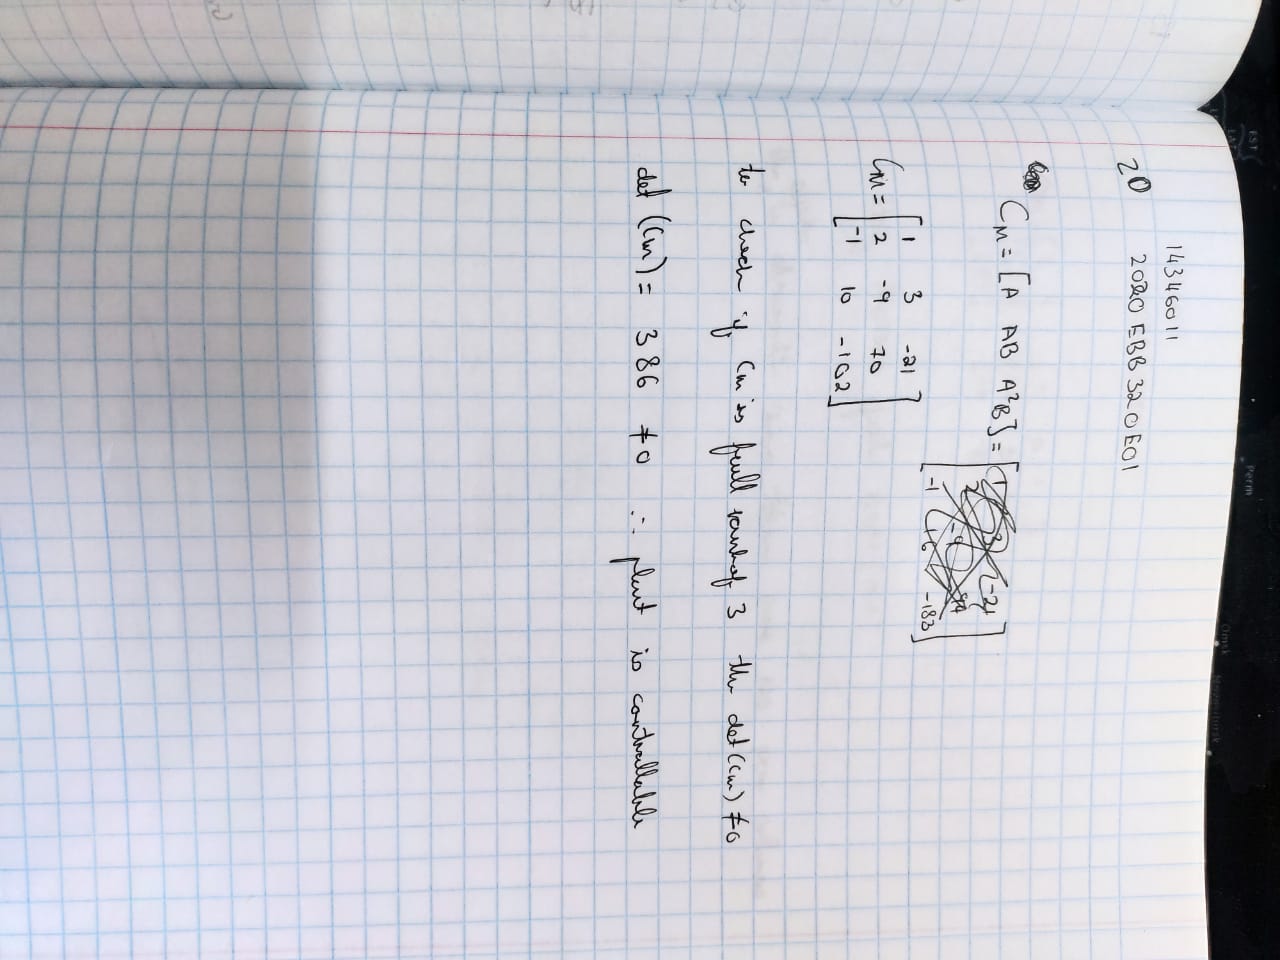 EST
Perm
Omsk
Novosibirsk
14346011
20
2020 EBB 320 E01
CM = [A AB A²B] = [1 3 -21
2 -9
-1 16 -183]
CM = [1 3 -21
2 -9 70
-1 10 -102]
to check if Cm is full rank of 3 the det(Cm) ≠0
det (Cm) = 386 ≠0 ∴ plant is controllable